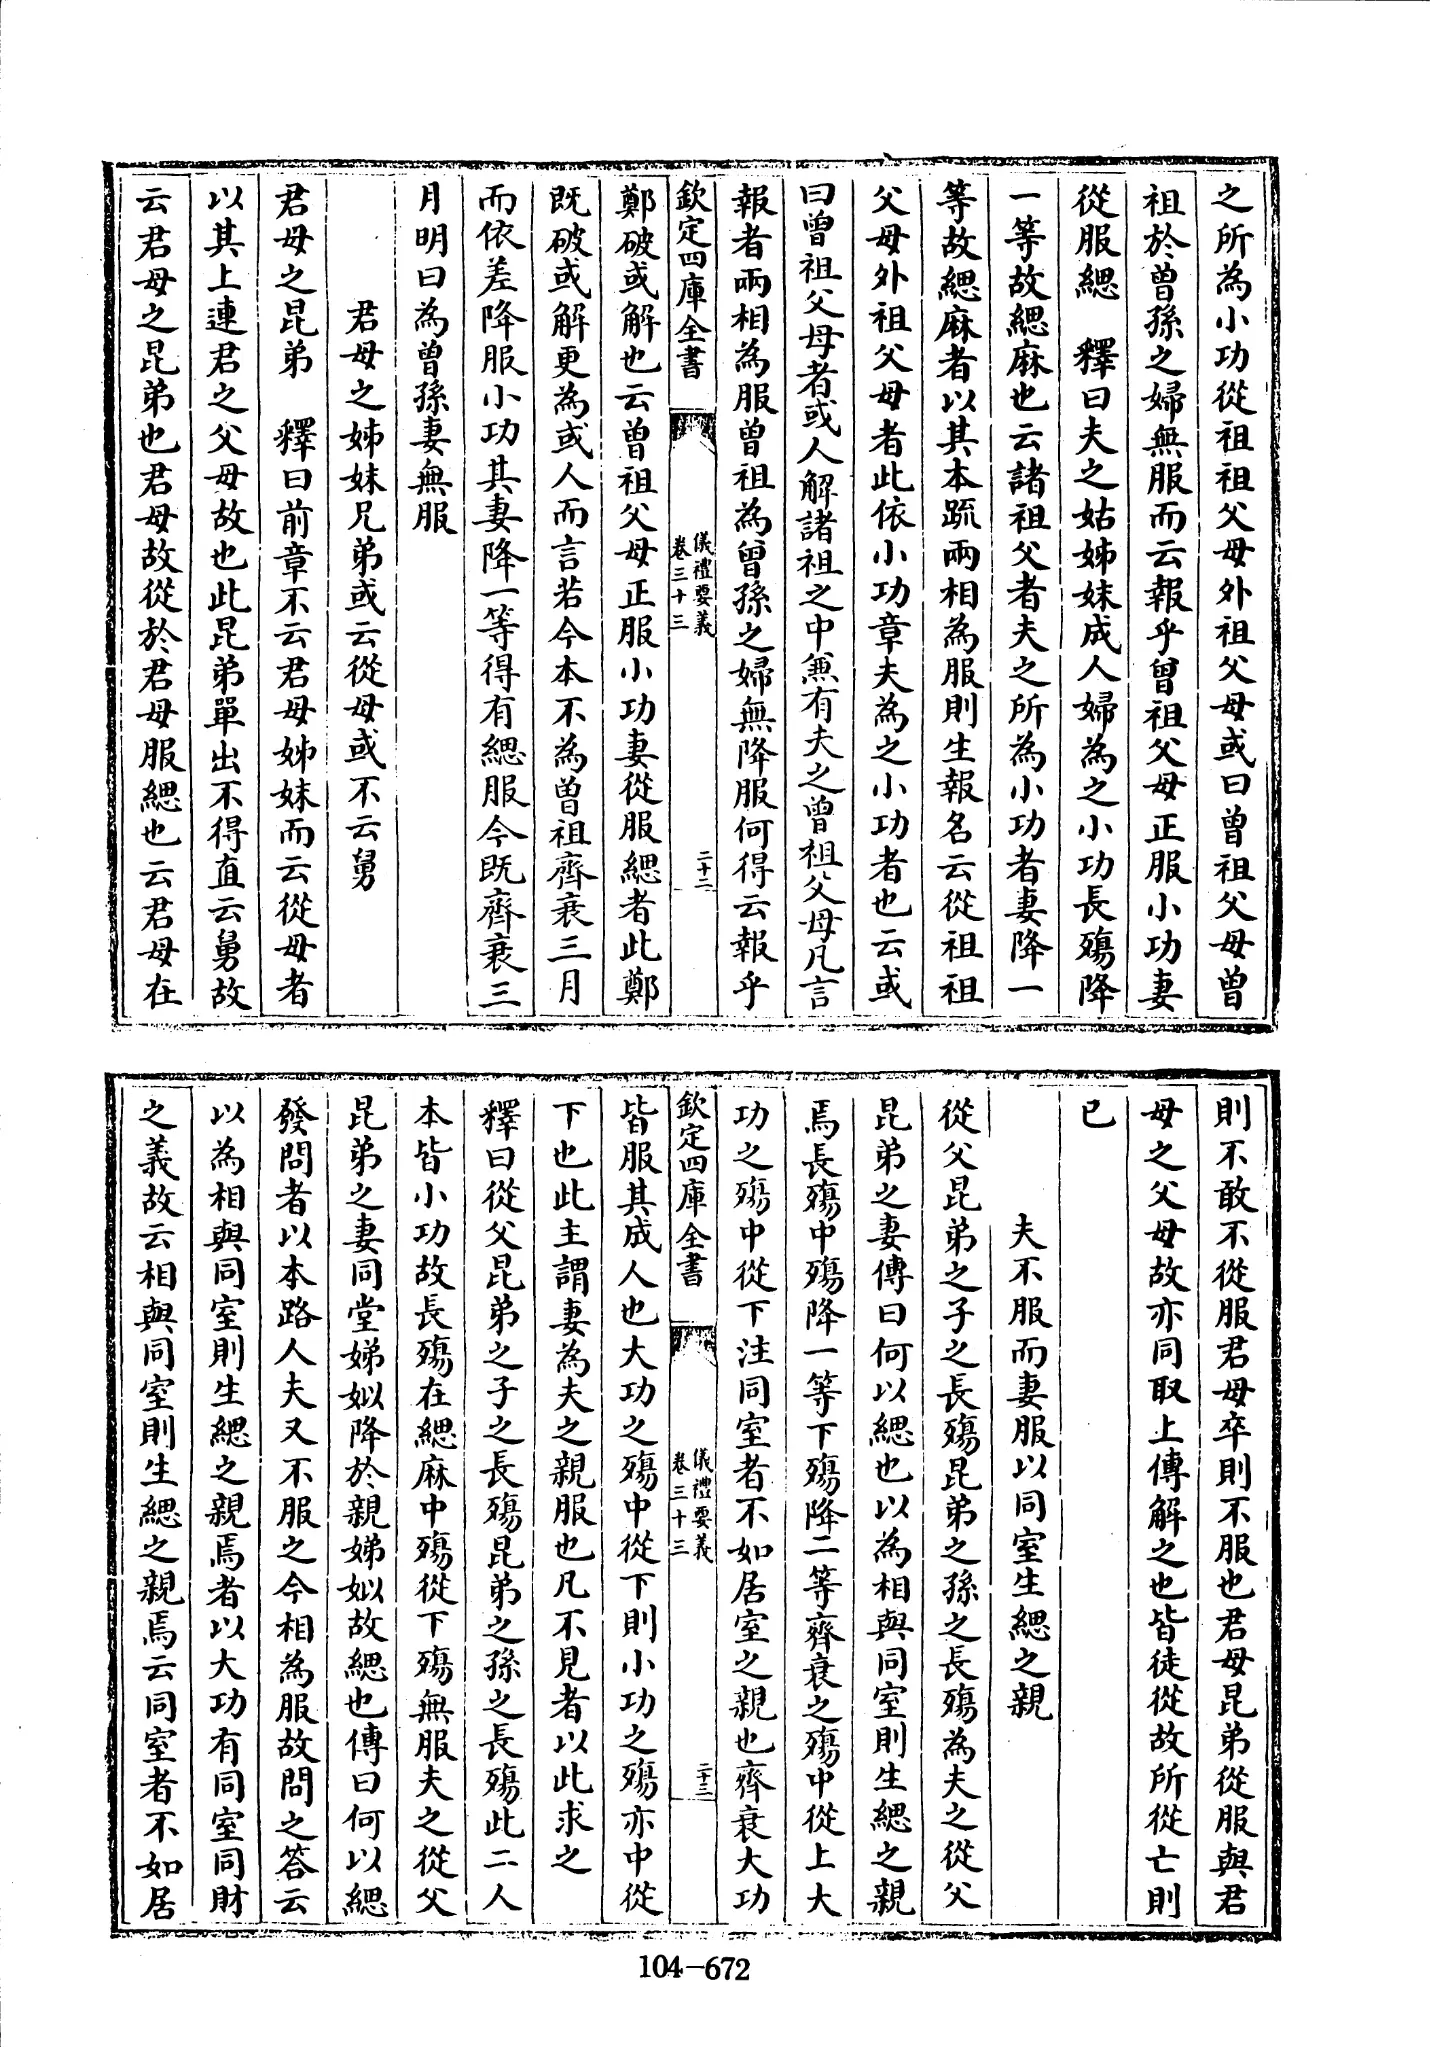 之所為小功從祖祖父母外祖父母或曰曾祖父母曾
祖於曾孫之婦無服而云報乎曾祖父母正服小功妻
從服緦　釋曰夫之姑姊妹成人婦為之小功長殤降
一等故緦麻也云諸祖父者夫之所為小功者妻降一
等故緦麻者以其本疏兩相為服則生報名云從祖祖
父母外祖父母者此依小功章夫為之小功者也云或
曰曾祖父母者或人解諸祖之中兼有夫之曾祖父母凡言
報者兩相為服曾祖為曾孫之婦無降服何得云報乎
欽定四庫全書　儀禮要義卷三十三　二十二
鄭破或解也云曾祖父母正服小功妻從服緦者此鄭
既破或解更為或人而言若今本不為曾祖齊衰三月
而依差降服小功其妻降一等得有緦服今既齊衰三
月明曰為曾孫妻無服
君母之姊妹兄弟或云從母或不云舅
君母之昆弟　釋曰前章不云君母姊妹而云從母者
以其上連君之父母故也此昆弟單出不得直云舅故
云君母之昆弟也君母故從於君母服緦也云君母在
則不敢不從服君母卒則不服也君母昆弟從服與君
母之父母故亦同取上傳解之也皆徒從故所從亡則
已
夫不服而妻服以同室生緦之親
從父昆弟之子之長殤昆弟之孫之長殤為夫之從父
昆弟之妻傳曰何以緦也以為相與同室則生緦之親
焉長殤中殤降一等下殤降二等齊衰之殤中從上大
功之殤中從下注同室者不如居室之親也齊衰大功
欽定四庫全書　儀禮要義卷三十三　二十三
皆服其成人也大功之殤中從下則小功之殤亦中從
下也此主謂妻為夫之親服也凡不見者以此求之
釋曰從父昆弟之子之長殤昆弟之孫之長殤此二人
本皆小功故長殤在緦麻中殤從下殤無服夫之從父
昆弟之妻同堂娣姒降於親娣姒故緦也傳曰何以緦
發問者以本路人夫又不服之今相為服故問之答云
以為相與同室則生緦之親焉者以大功有同室同財
之義故云相與同室則生緦之親焉云同室者不如居
104-672